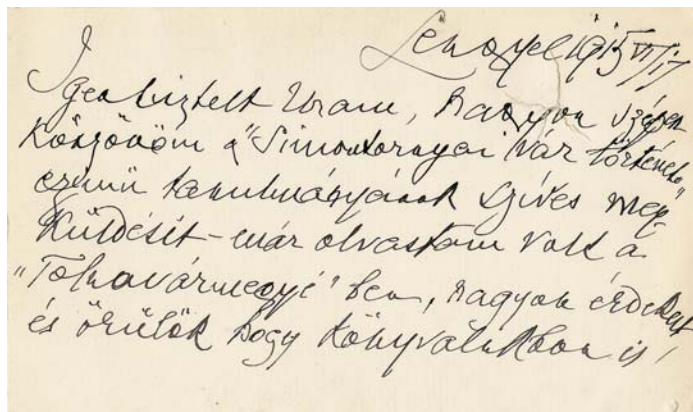 Lengyel 1915 VI/17
Igen tisztelt Uram, nagyon szépen
köszönöm a "Simontornyai vár története"
czimü tanulmányának szíves meg-
küldését - már olvastam volt a
"Tolnavármegyé"ben, nagyon érdekelt
és örülök hogy könyvalakban is